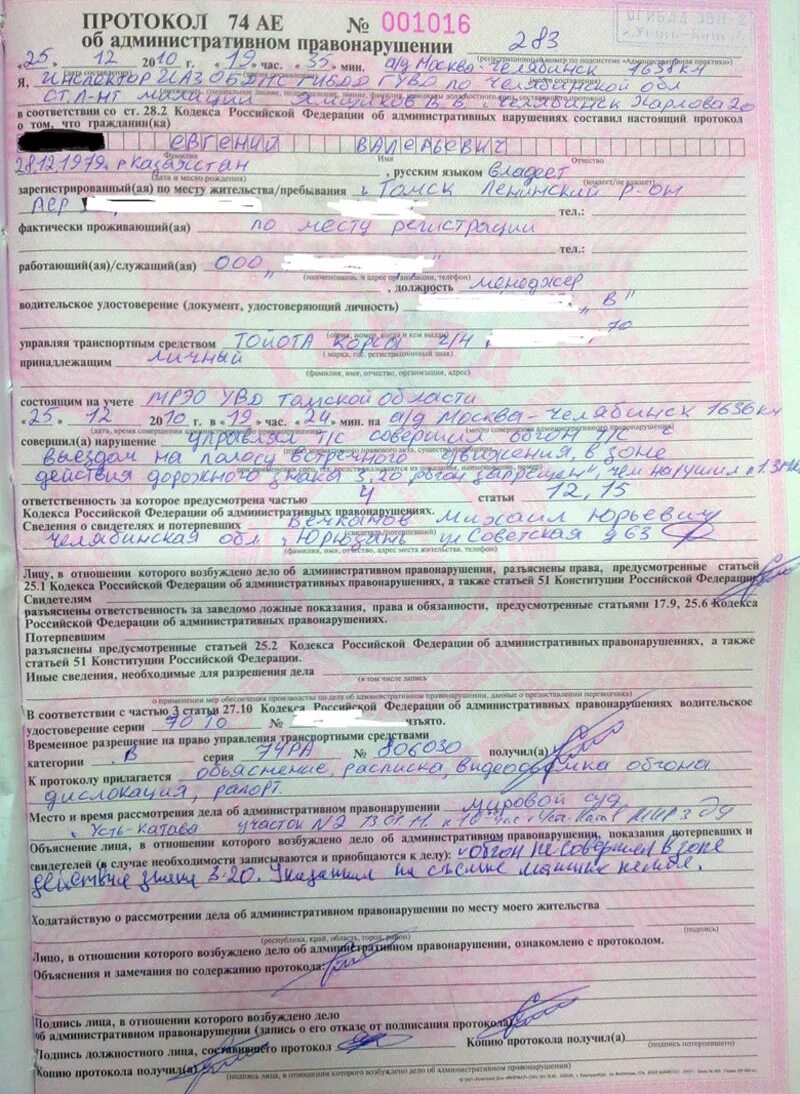 ПРОТОКОЛ 74 АЕ № 001016
об административном правонарушении 283
(регистрационный номер по подсистеме «Административная практика»)
«25» 12 2010 г. 19 час. 35 мин. а/д Москва-Челябинск 1636км
(дата составления)
Я, инспектор ДПС ГИБДД ГУВД по Челябинской обл
ст. л-нт милиции В.В. г. Челябинск Харлова 20
в соответствии со ст. 28.2 Кодекса Российской Федерации об административных нарушениях составил настоящий протокол
о том, что гражданин(ка)
ЕВГЕНИЙ ВАЛЕРЬЕВИЧ
Фамилия Имя Отчество
28.12.1979 г Казахстан , русским языком владеет
(дата и место рождения) (владеет/не владеет)
зарегистрированный(ая) по месту жительства/пребывания г. Томск Ленинский р-он
тел.:
фактически проживающий(ая) по месту регистрации
тел.:
работающий(ая)/служащий(ая) ООО "
(наименование и адрес организации, телефон)
, должность менеджер
водительское удостоверение (документ, удостоверяющий личность) "В"
(серия, номер, когда и кем выдан)
управляя транспортным средством ТОЙОТА КОРСА г/н 70
(марка, гос. регистрационный знак)
принадлежащим личный
(фамилия, имя, отчество, организация, адрес)
состоящим на учете МРЭО УВД Томской области
«25» 12 2010 г. в 19 час. 24 мин. на а/д Москва-Челябинск 1636 км
(дата, время совершения административного правонарушения) (место совершения административного правонарушения)
совершил(а) нарушение управлял т/с совершил обгон т/с с
выездом на полосу встречного движения, в зоне
действия дорожного знака 3.20 „обгон запрещен", чем нарушил п 1.3 ПДД
ответственность за которое предусмотрена частью 4 статьи 12,15
Кодекса Российской Федерации об административных правонарушениях.
Сведения о свидетелях и потерпевших Михаил Юрьевич
Челябинская обл г. Юрюзань ул Советская д 63
(фамилия, имя, отчество, адрес места жительства, телефон)
Лицу, в отношении которого возбуждено дело об административном правонарушении, разъяснены права, предусмотренные статьей
25.1 Кодекса Российской Федерации об административных правонарушениях, а также статьей 51 Конституции Российской Федерации
Свидетелям
разъяснены ответственность за заведомо ложные показания, права и обязанности, предусмотренные статьями 17.9, 25.6 Кодекса
Российской Федерации об административных правонарушениях.
Потерпевшим
разъяснены предусмотренные статьей 25.2 Кодекса Российской Федерации об административных правонарушениях, а также
статьей 51 Конституции Российской Федерации.
Иные сведения, необходимые для разрешения дела
(в том числе запись
о применении мер обеспечения производства по делу об административном правонарушении, данные о предоставлении переводчика)
В соответствии с частью 3 статьи 27.10 Кодекса Российской Федерации об административных правонарушениях водительское
удостоверение серии 70 10 № изъято.
Временное разрешение на право управления транспортными средствами
категории В серия 74РА № 806030 получил(а)
К протоколу прилагается объяснение, расписка, видеосъемка обгона
дислокация, рапорт.
Место и время рассмотрения дела об административном правонарушении мировой суд
г. Усть-Катава участок №2 13.01.11
Объяснение лица, в отношении которого возбуждено дело об административном правонарушении, показания потерпевших и
свидетелей (в случае необходимости записываются и приобщаются к делу): обгон не совершал в зоне
действия знака 3.20. Указанный на съемке
Ходатайствую о рассмотрении дела об административном правонарушении по месту моего жительства
(республика, край, область, город, район) (подпись)
Лицо, в отношении которого возбуждено дело об административном правонарушении, ознакомлено с протоколом.
Объяснения и замечания по содержанию протокола:
Подпись лица, в отношении которого возбуждено дело
об административном правонарушении (запись о его отказе от подписания протокола)
Подпись должностного лица, составившего протокол Копию протокола получил(а)
(подпись потерпевшего)
Копию протокола получил(а)
(подпись лица, в отношении которого возбуждено дело об административном правонарушении)